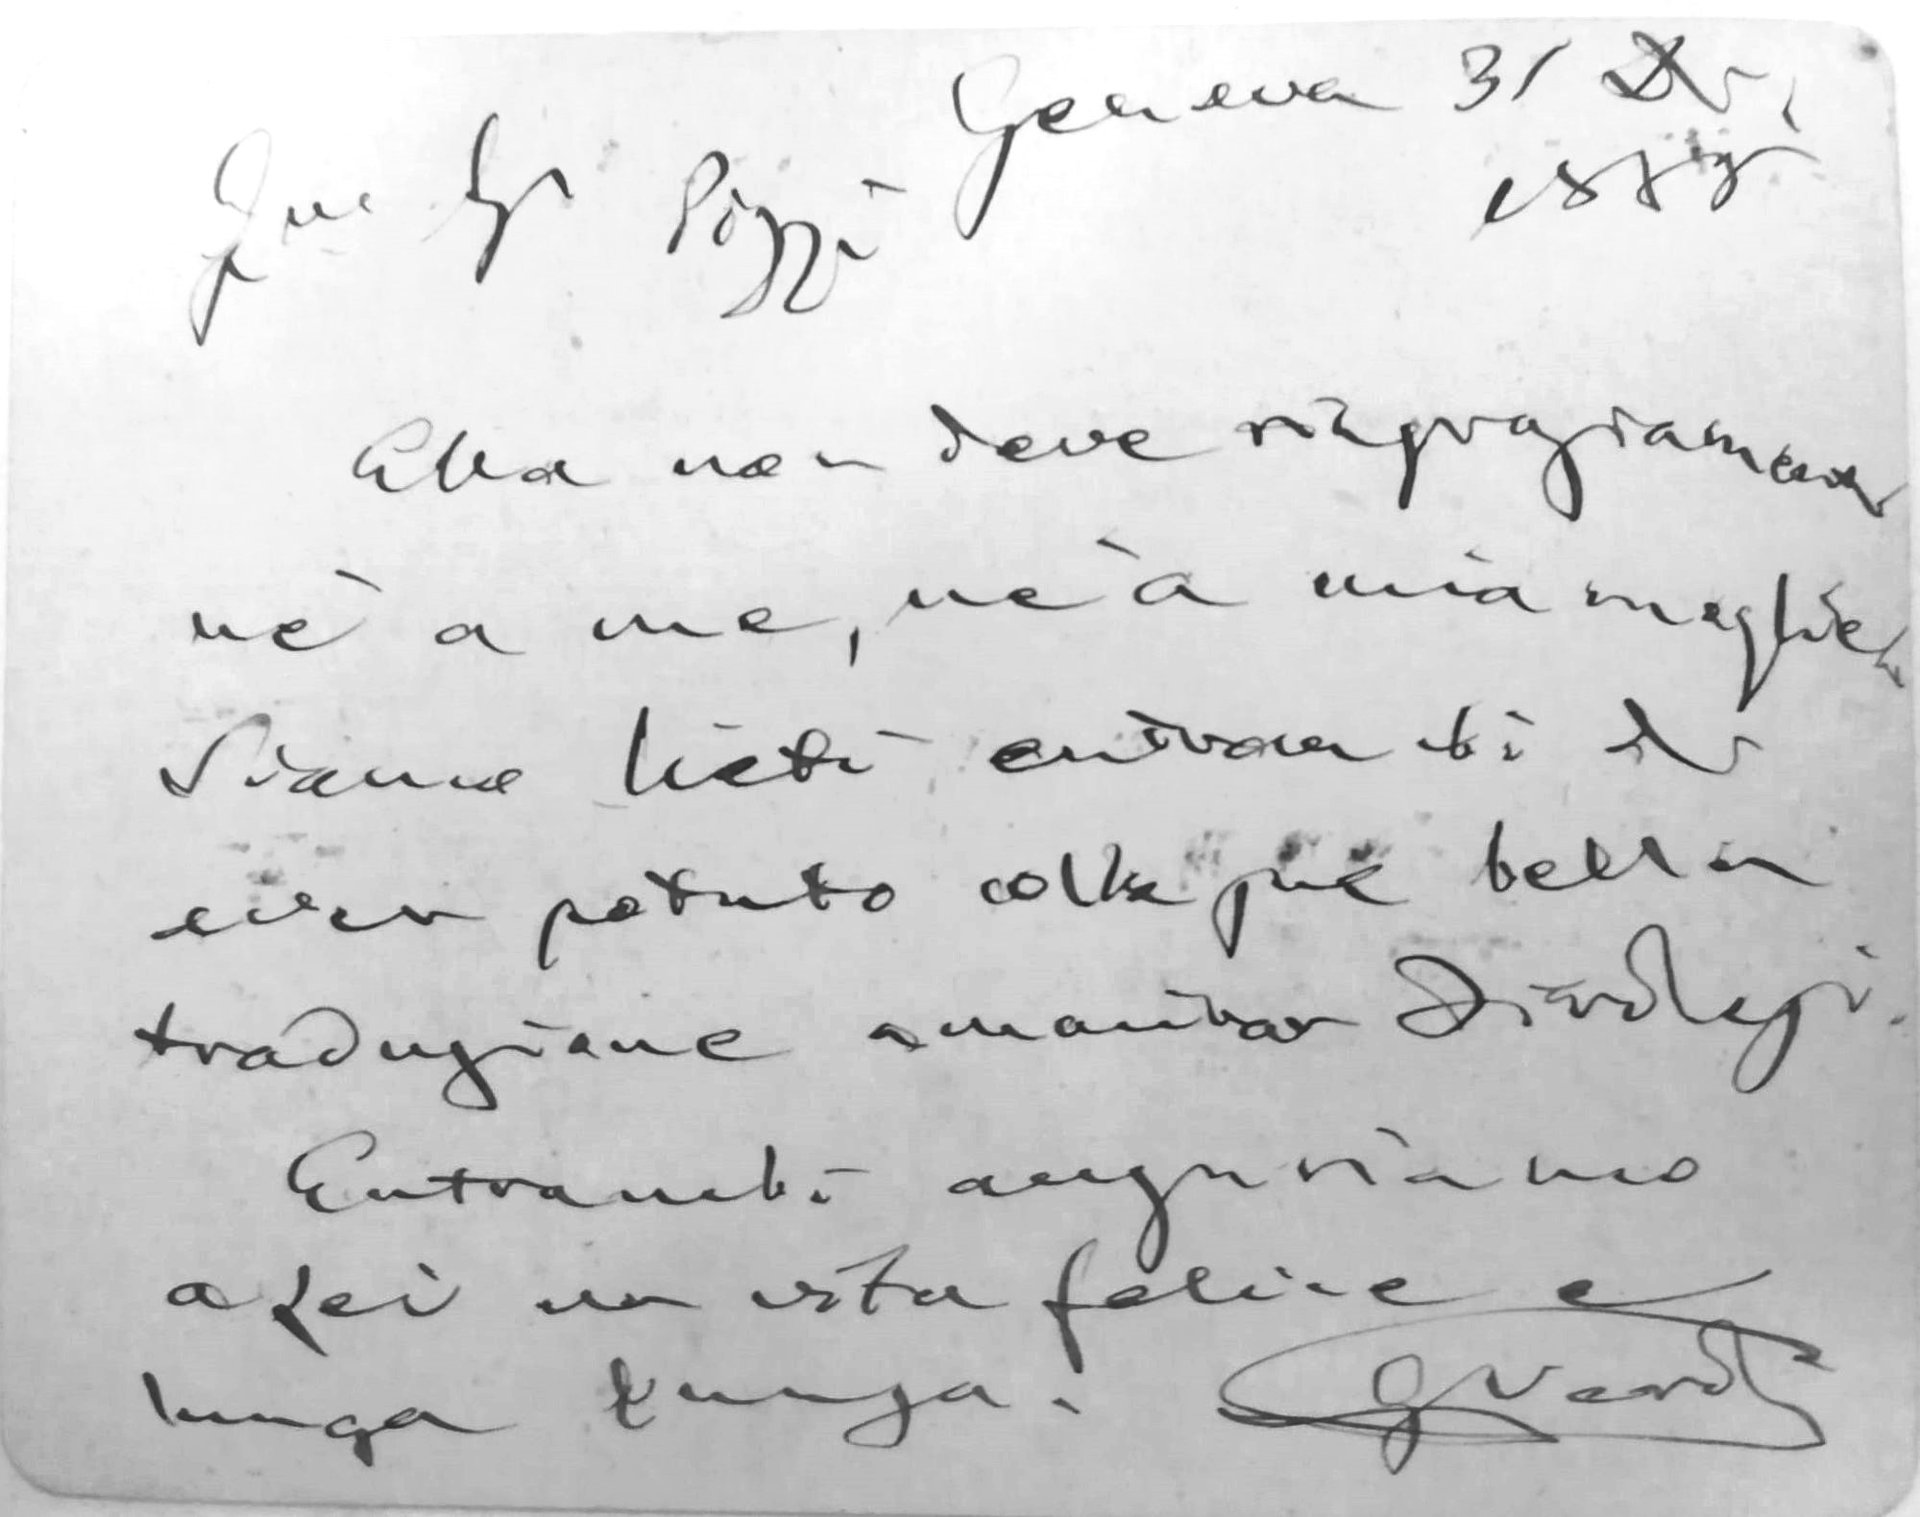 Genova 31 Dic.
1889
Gen. Sig. Pizzi
Ella non deve ringraziamenti
nè a me, nè a mia moglie
Siamo lieti entrambi di
aver potuto colle sue bella
traduzione
Entrambi auguriamo
a Lei una vita felice e
lunga lunga.
GVerdi